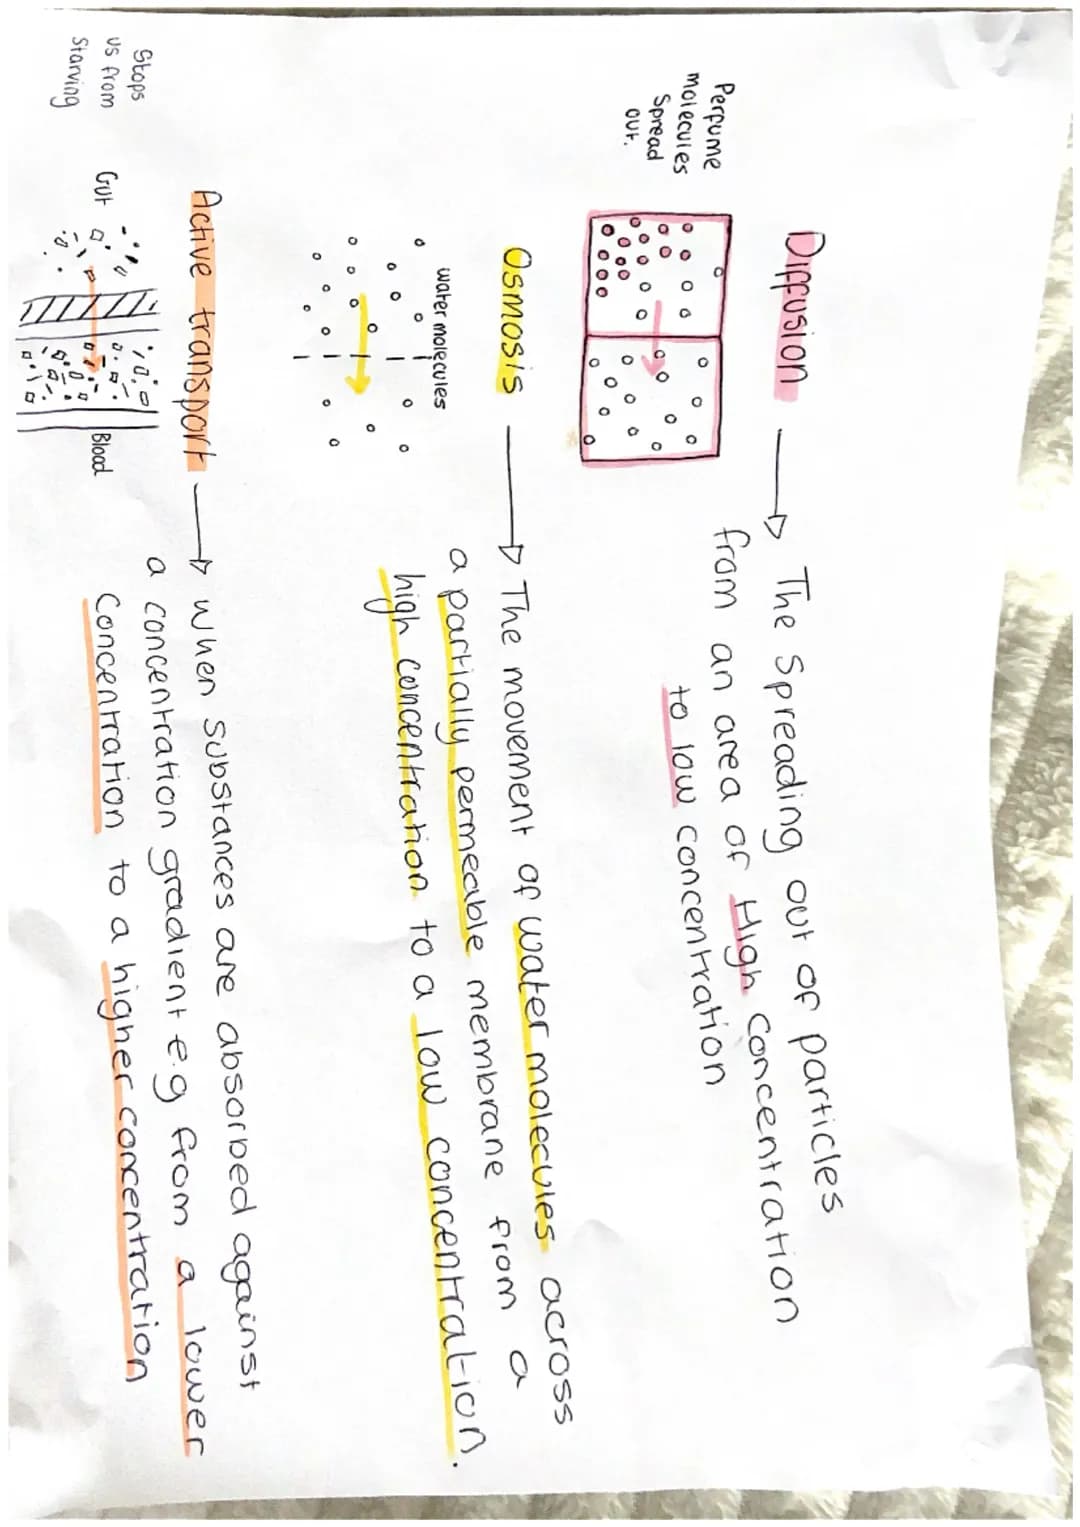 Diffusion → The Spreading out of particles
from an area of High Concentration
to low concentration
Perfume
molecules
Spread
out.
Osmosis → The movement of water molecules across
a partially permeable membrane from a
high concentration to a low concentration.
water molecules
Active transport → when substances are absorbed against
a concentration gradient e.g from a lower
Concentration to a higher concentration
Stops
us from
Starving
Gut
Blood